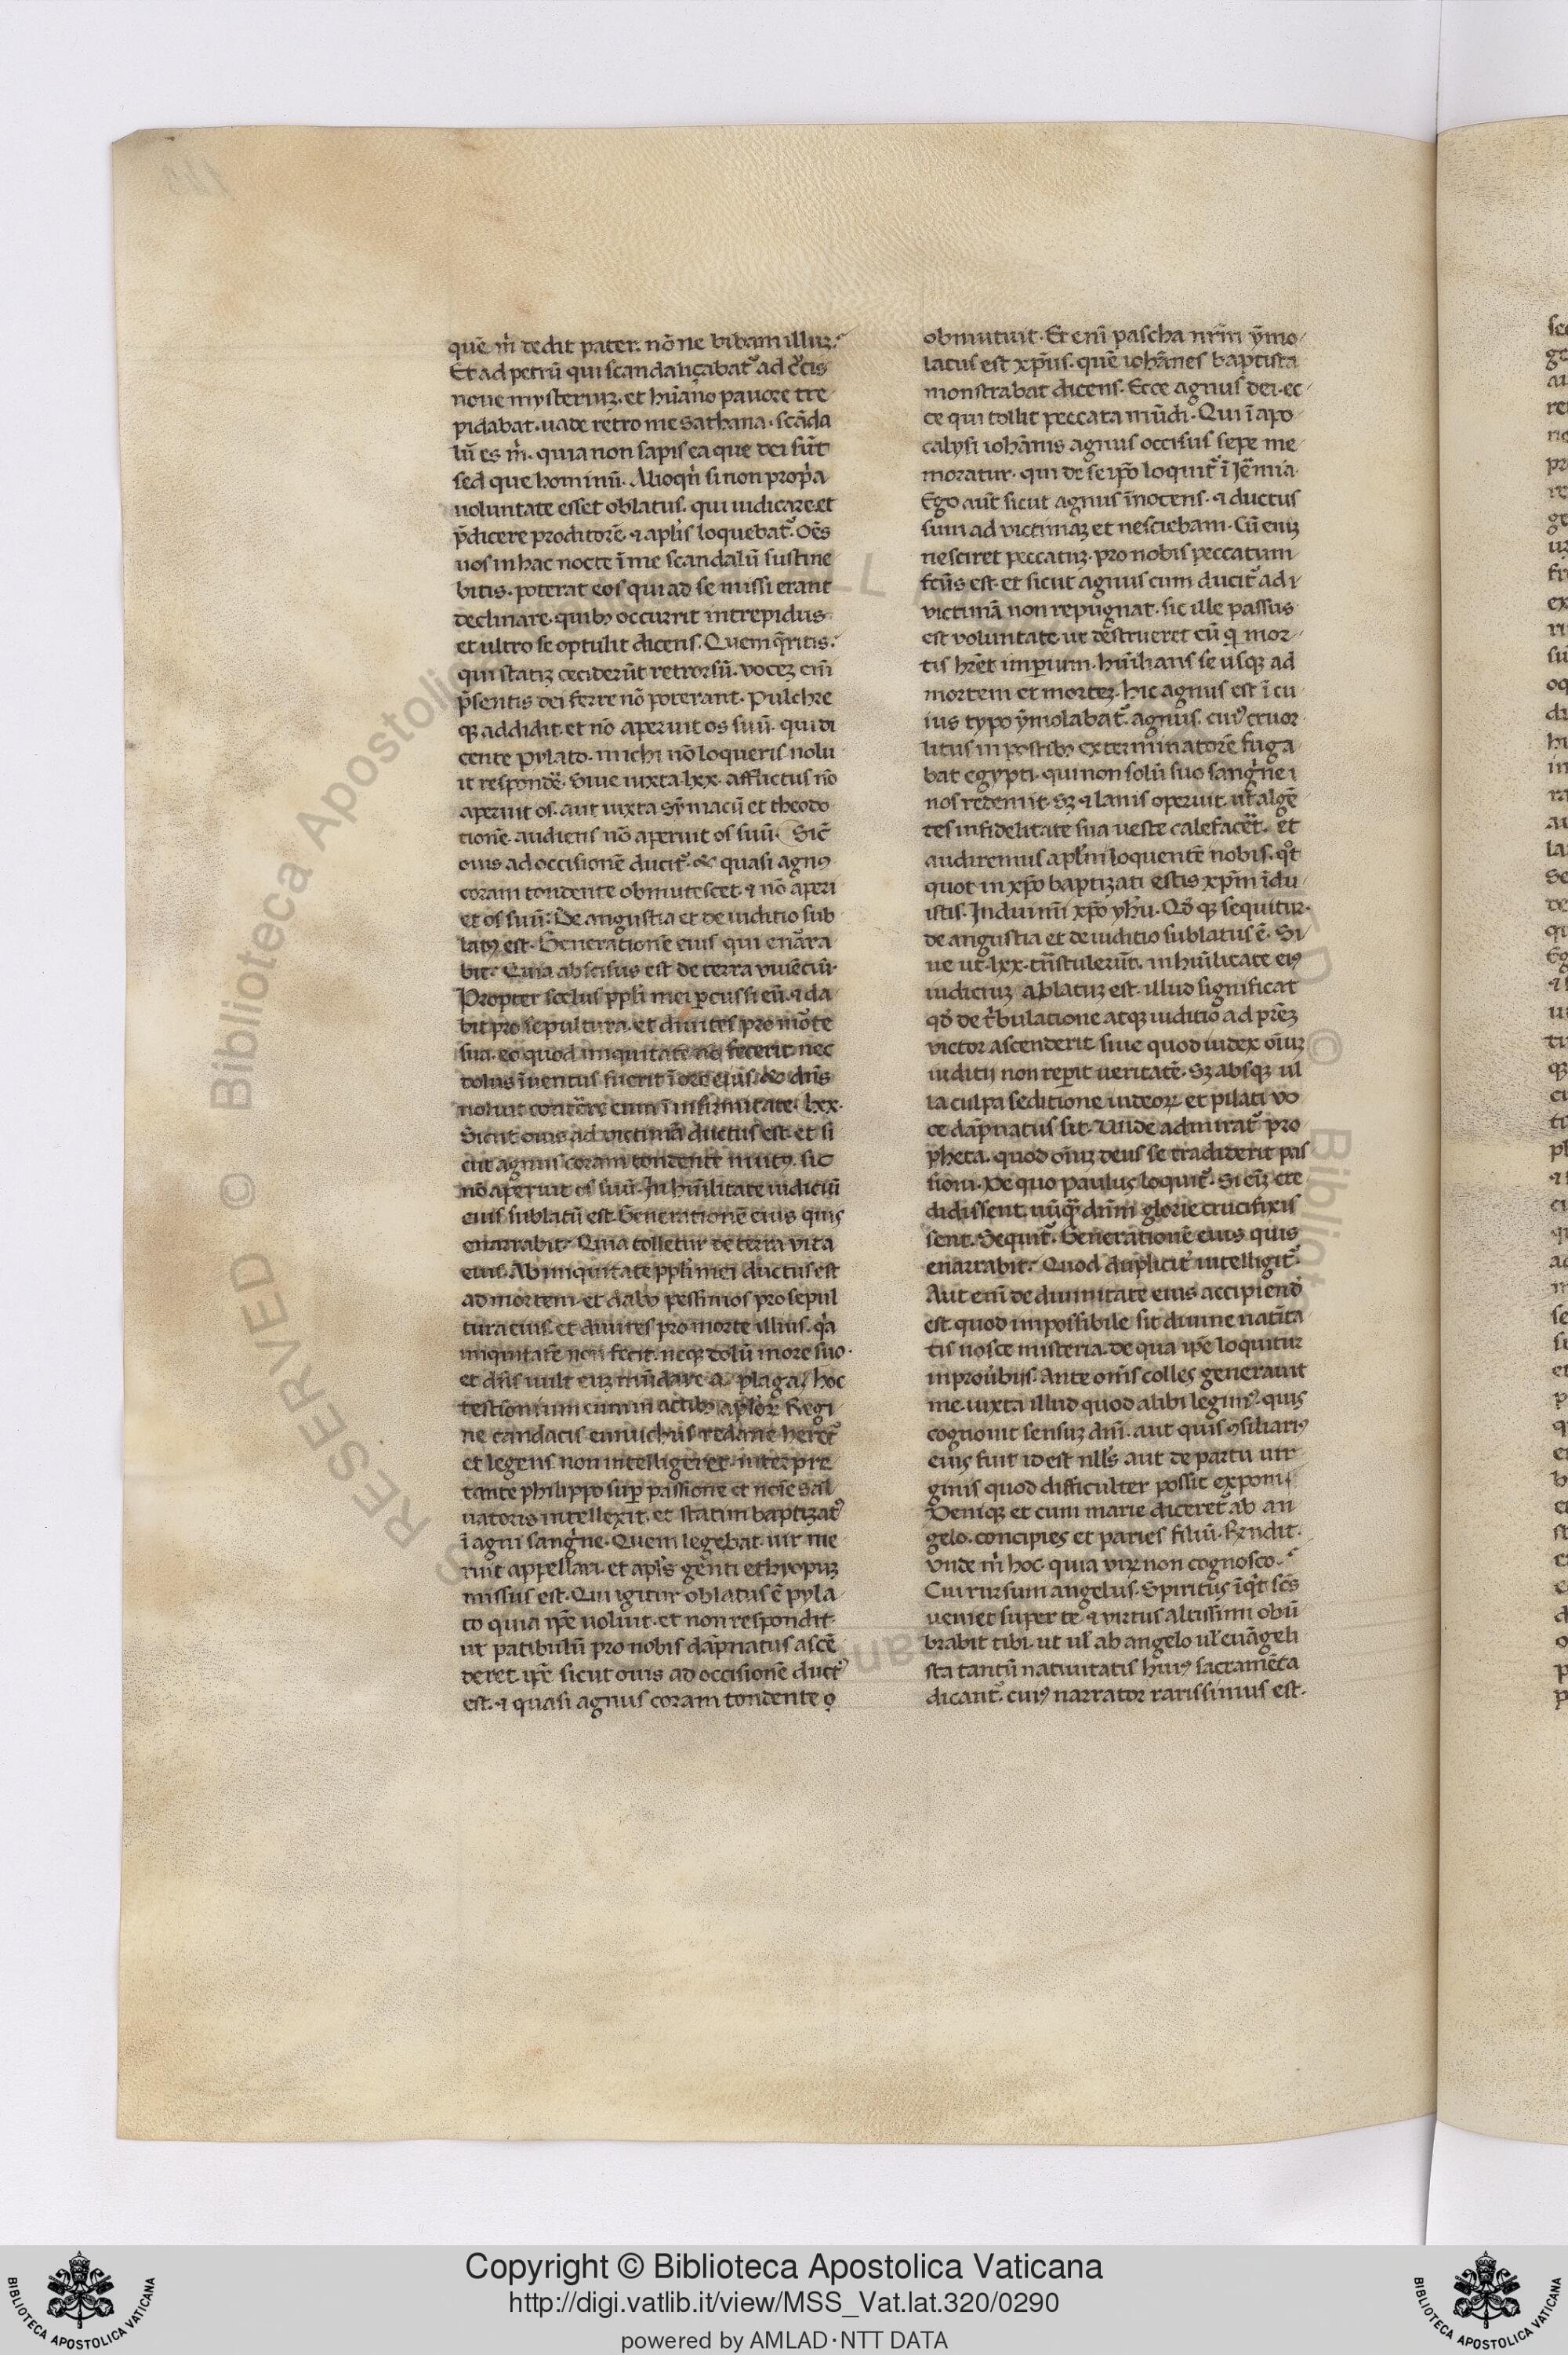 quē m̄ dedit pater. nō ne bibam illuz?
Et ad petrū qui scandaliçabat᷑ ad c̄cis
noue mysteriuz. et hūano pauore tre
pidabat. uade retro me sathana. scāda
lū es m̄. quia non sapis ea que dei sūt
sed que hominū. Alioqn̄ si non prop̄a
uoluntate esset oblatus. qui iudicare et
p̄dicere proditorē. ⁊ aplīs loquebat᷑. Oēs
uos in hac nocte ī me scandalū sustine
bitis. poterat eos qui ad se missi erant
declinare. quibꝫ occurrit intrepidus
et ultro se optulit dicens. Quem q̄ritis?
qui statiz ceciderūt retrorsū. vocez enī
p̄sentis dei ferre nō poterant. Pulchre
qꝫ addidit. et nō aperuit os suū. qui di
cente pylato. michi nō loqueris nolu
it respondē. Siue iuxta .lxx. afflictus nō
aperuit os. aut iuxta sȳmacū et theodo
tionē. audiens nō aperuit os suū. Sic̄
ouis ad occisionē ducit᷑. & quasi agnꝰ
coram tondente obmutescet. ⁊ nō aperi
et os suū: De angustia et de iuditio sub
latꝰ est. Generationē eius qui enārra
bit? Quia abscisus est de terra viuēciū.
Propter scelus ppl̄i mei ꝑcussi eū. ⁊ da
bit pro sepultura. et diuites pro mōte
sua. eo quod iniquitatē nō fecerit. nec
dolus īuentus fuerit ī ore eius. & dn̄s
noluit contēre eum ī infirmitate. lxx.
Sicut ouis ad victimā ductus est. et si
cut agnus coram tondente mutꝰ. sic
nō aperuit os suū. In hūilitate iudiciū
eius sublatū est. Generationē eius quis
enarrabit? Quia tolletur de terra vita
eius. Ab iniquitate ppl̄i mei ductus est
ad mortem. et dabo pessimos pro sepul
tura eius. et diuites pro morte illius. q̄a
iniquitatē non fecit. neqꝫ dolū in ore suo.
et dn̄s uult euz mūdare a plaga. hoc
testīonium eum in actibꝫ aplōꝝ Regi
ne candacis eunuchus
et legens non intelligeret. interpre
tante philippo suꝑ passione et noīe sal
uatoris intellexit. et statim baptizatꝰ
ī agni sangʼne. Quem legebat. uir me
ruit appellari. et apl̄s genti ethyopuz
missus est. Qui igitur oblatus ē pyla
to quia ip̄e uoluit. et non respondit
ut patibulū pro nobis dāpnatus ascē
deret. ip̄e sicut ouis ad occisionē duct᷑
est. ⁊ quasi agnus coram tondente o
obmutuit. Et enī pascha nr̄m ȳmo
latus est xp̄us. quē iohānes baptista
monstrabat dicens. Ecce agnus dei. ec
ce qui tollit peccata mūdi. Qui ī apo
calysi iohānis agnus occisus sepe me
moratur. qui de se ip̄o loquit᷑ ī Jēmia.
Ego aut̄ sicut agnus īnocens. ⁊ ductus
sum ad victimaz et nesciebam. Cū eniz
nesciret peccatuz. pro nobis peccatum
fcūs est. et sicut agnus cum ducit᷑ ad i
victimā non repugnat. sic ille passus
est voluntate. ut dēstrueret eū qͥ mor
tis hr̄et imꝑium. hūilians se usqꝫ ad
mortem et mortez. hic agnus est ī cu
ius typo ȳmolabat᷑ agnus. cuiꝰ cruor
litus in postibꝫ exterminatorē fuga
bat egypti. qui non solū suo sangʼne i
nos redemit. sꝫ ⁊ lanis operuit. ut algē
tes infidelitate sua ueste calefacēt. et
audiremus aplm̄ loquentē nobis. qͦt
quot in xp̄o baptizati estis xp̄m īdu
istis. Induimī xp̄o yhu. Qd̄ qꝫ sequitur.
de angustia et de iuditio sublatus ē. Si
ue ut .lxx. tn̄stulerūt. in hūilitate eiꝰ
iudiciuz ablatuz est. illud significat
qd̄ de tʼbulatione atqꝫ iuditio ad prēz
victor ascenderit. siue quod iudex oīuz
iuditij non reꝑit ueritatē. Sꝫ absqꝫ ul
la culpa seditione iudeoꝝ et pilati vo
ce dāpnatus sit. Vnde admirat᷑ pro
pheta. quod oīuz deus se tradiderit pas
sioni. De quo paulus loquit᷑. Si eīz cre
didissent. nūqᷓ dnm̄ glorie crucifixis
sent. Sequit᷑. Generationē eius quis
enarrabit? Quod duplicit᷑ intelligit᷑.
Aut enī de diuinitate eius accipiend
est. quod impossibile sit diuine natīta
tis nosce misteria. de qua ip̄e loquitur
in prouʼbijs. Ante om̄s colles generauit
me. iuxta illud quod alibi legimꝰ. quis
cognouit sensuz dn̄i. aut quis ꝯsiliariꝰ
eius fuit id est nll̄s aut de partu uir
ginis quod difficulter possit exponi
Deniqꝫ et cum marie diceret᷑ ab an
gelo. concipies et paries filiū. Rn̄dit.
vnde m̄ hoc. quia viꝝ non cognosco?
Cui rursum angelus. Spiritus īqͥt sc̄s
ueniet super te. ⁊ virtus altissimi obū
brabit tibi. ut ul̄ ab angelo ul̄ euāgeli
sta tantū natiuitatis huiꝰ sacramēta
dicant᷑. cuiꝰ narrator rarissimus est.
Copyright © Biblioteca Apostolica Vaticana
http://digi.vatlib.it/view/MSS_Vat.lat.320/0290
powered by AMLAD·NTT DATA